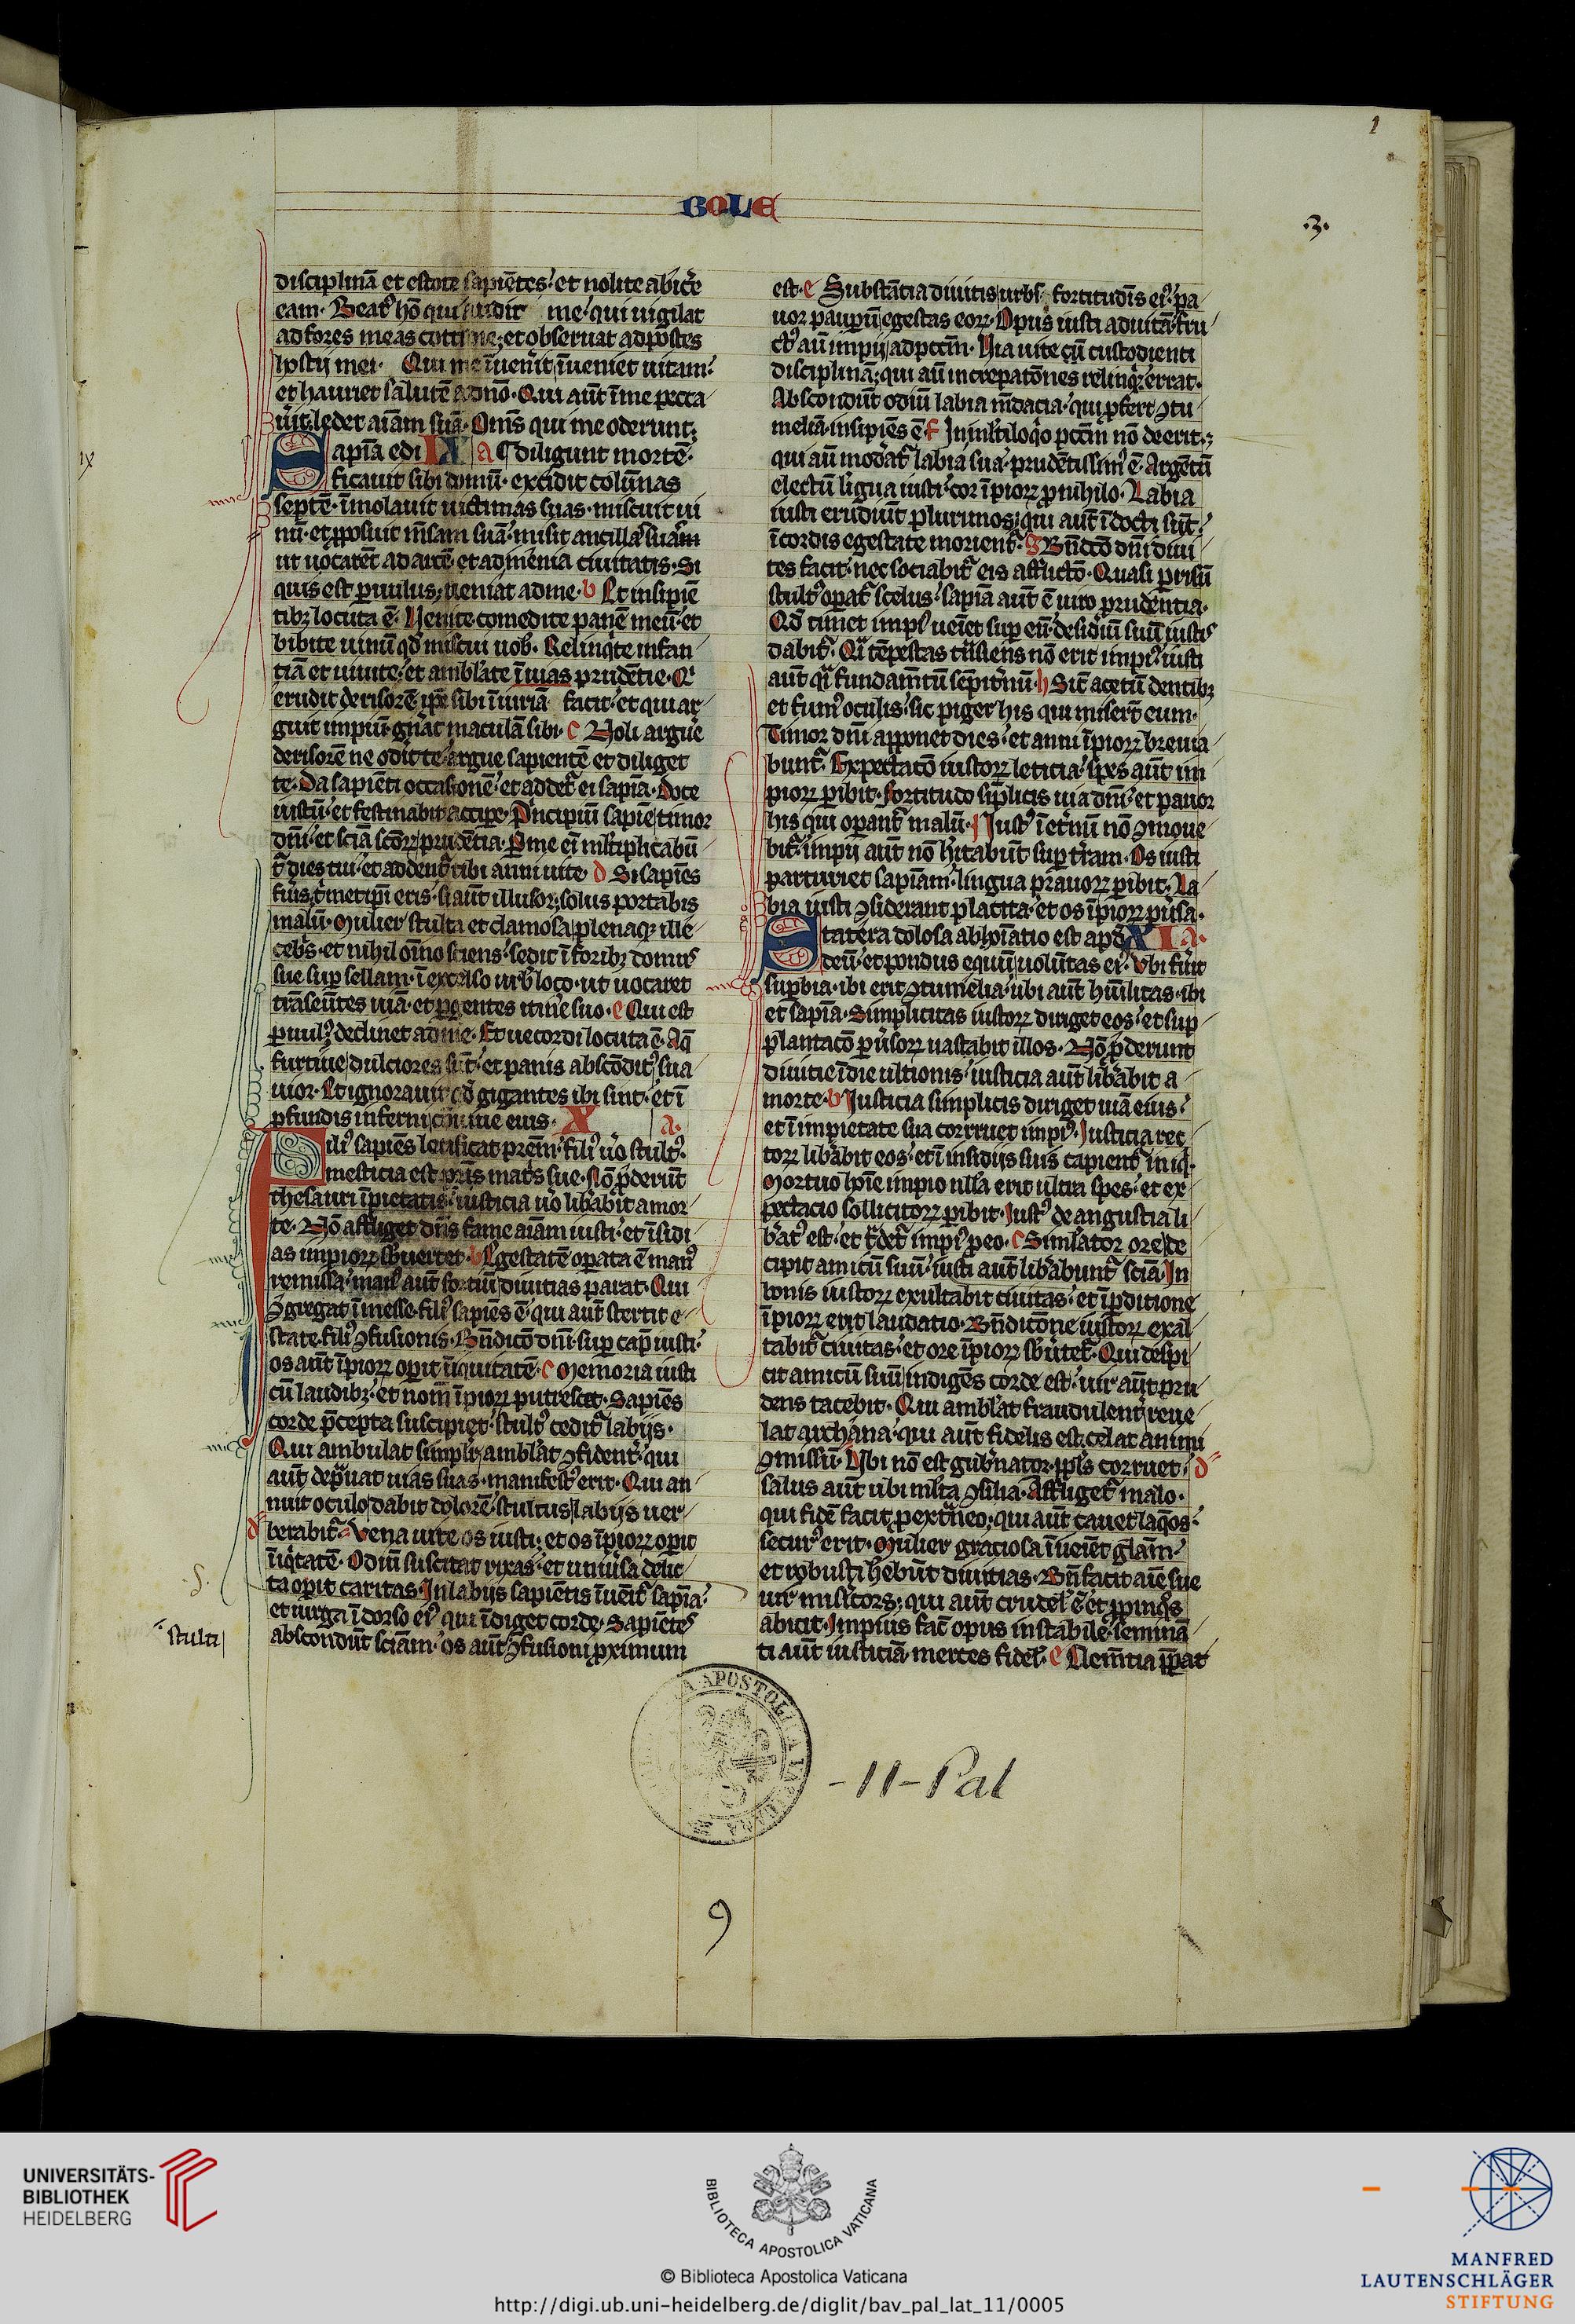 1
BOLE
.3.
disciplinā et estote sapiētes. et nolite abicͥe
eam. Beatꝰ hō qui audit me. qui uigilat
ad fores meas cotti ne. et obseruat ad postes
hostij mei. Qui me īuenͥit īueniet uitam.
et hauriet salutē a dn̄o. Qui aūt ī me pecca
uͥit. ledet aīam suā. Om̄s qui me oderunt.
Sapīa edi IX a diligunt mortē.
ficauit sibi domū. excidit colūnas
septē. īmolauit uictimas suas. miscuit ui
nū. et ꝓposuit m̄sam suā. misit ancillas suas
ut uocarēt ad arcē. et ad menia ciuitatis. Si
quis est ꝑuulus, ueniat ad me. b Et insipiē
tibꝫ locuta ē. Uenite comedite panē meū. et
bibite uinū qd̄ miscui uob. Relinqͥte infan
tiā et uiuite. et amblate ī uias prudētie. Qͥ
erudit derisorē ip̄e sibi īiuriā facit. et qui ar
guit impiū. gn̄at maculā sibi. c Noli arguͥe
derisorē ne odit te. argue sapientē et diliget
te. Da sapiēti occasionē. et addetͬ ei sapīa. Doce
iustū. et festinabit accipͥe. Pͥncipiū sapiētie timor
dn̄i. et scīa sc̄orꝝ prudētia. Per me eī ml̄tiplicabū
tͬ dies tui. et addentͬ tibi anni uite. d Si sapiēs
fuͥis, tͥmetipi eris. si aūt illusor, solus portabis
malū. Mulier stulta et clamosa plenaqꝫ ille
cebͥs. et nihil oīno sciens. sedit ī foribꝫ domus
sue suꝑ sellam. ī excelso urbͥ loco. ut uocaret
trāseūtes uiā. et ꝑgentes itinͥe suo. e Qui est
ꝑuulꝰ declinet ad me. Et uecordi locuta ē. Aq̄
furtiue dulciores sūt. et panis abscōditꝰ sua
uior. Et ignorauit qd̄ gigantes ibi sint. et ī
ꝓfundis inferni cōuiue eius. X a.
Filiꝰ sapiēs letificat pr̄em. filiꝰ uͦo stultꝰ
mesticia est mat̄s sue. Nō ꝓderūt
thesauri īpietatis. iusticia uͦo libͥabit a mor
te. Nō affliget dn̄s fame aīam iusti. et īsidi
as impiorꝝ sb̄uertet. b Egestatē opata ē manꝰ
remissa. manꝰ aūt fortiū diuitias parat. Qui
ꝯgregat ī messe. filiꝰ sapiēs ē. qui aūt stertit e
state. filiꝰ ꝯfusionis. Bn̄dicō dn̄i. suꝑ cap̄ iusti.
os aūt īpiorꝝ opit īiquitatē. c Memoria iusti
cū laudibꝫ. et nom̄ īpiorꝝ putrescet. Sapiēs
corde p̄cepta suscipiet. stultꝰ ceditͬ labijs.
Qui ambulat simplr̄, amblat ꝯfident̄. qui
aūt dep̄uat uias suas. manifestꝰ erit. Qui an
nuit oculo dabit dolorē. stultus labijs uer
d berabitͬ. Vena uite os iusti. et os īpiorꝝ opit
īiqͥtatē. Odiū suscitat rixas. et uniuͥsa delic
ta opit caritas. In labijs sapiētis īuēitͬ sapīa.
et uirga ī dorso eiꝰ qui īdiget corde. Sapiētes
abscondūt scīam. os aūt ꝯfusioni ꝓximum
stulti
ix
est. e Substātia diuitis urbs fortitudīs eiꝰ. pa
uor paupum egestas eorꝝ. Opus iusti ad uitā. fru
ctꝰ aū impij ad pcc̄m. Uia uite eū custodienti
disciplinā. qui aū increpatōnes relinqͥt errat.
Abscondūt odiū labia m̄dacia. qui ꝓfert ꝯtu
meliā insipiēs ē. f In ml̄tiloqͦo pcc̄m nō deerit.
qui aū modͥatͬ labia sua. prudētissimꝰ ē. Argētū
electū lī̄gua iusti. cor īpiorꝝ ꝓ nihilo. Labia
iusti erudiūt plurimos. qui aūt īdocti sūt.
ī cordis egestate morientͬ. g Bn̄dcō dn̄i diui
tes facit. nec sociabitͬ eis afflictō. Quasi ꝑ risū
stultꝰ opatͬ scelus. sapīa aūt ē uiro prudentia.
Qd̄ timet impiꝰ ueīet suꝑ eū. desidͥiū suū iustis
dabitͬ. Qͣi tēpestas tn̄siens nō erit impiꝰ. iustꝰ
aūt qͣi fundam̄tū sēpit̄nū. h Sic̄ acetū dentibꝫ
et fumꝰ oculis. sic piger his qui miser̄t eum.
Timor dn̄i apponet dies. et anni īpiorꝝ breuia
buntͬ. Expectacō iustorꝝ leticia. spes aūt im
piorꝝ ꝑibit. Fortitudo siplicis uia dn̄i. et pauor
his qui operant̄ malū. Iustꝰ ī et̄nū nō ꝯmoue
bitͬ. impij aūt nō hītabūt suꝑ tr̄am. Os iusti
parturiet sapīam. lingua prauorꝝ ꝑibit. La
bia iusti ꝯsiderant placita. et os īpiorꝝ ꝑuͥsa.
Statera dolosa abhoīatio est apd̄ XI a.
deū. et pondus equū uolūtas eiꝰ. Vbi fuͥit
suꝑbia. ibi erit ꝯtumelia. ubi aūt hūilitas. ibi
et sapīa. Simplicitas iustorꝝ diriget eos. et sup
plantacō ꝑuͥsorꝝ uastabit illos. Nō ꝓderunt
diuitie ī die ultionis. iusticia aūt libͥabit a
morte. b Iusticia simplicis diriget uiā eius.
et ī impietate sua corruet impiꝰ. Iusticia rec
torꝝ libͥabit eos. et ī insidijs suis capient̄ iniqͥ.
Mortuo hoīe impio nll̄a erit ultra spes. et ex
pectacio sollicitorꝝ ꝑibit. Iustꝰ de angustia li
bͥatꝰ est. et tͬdetͬ impiꝰ ꝓ eo. c Simlator ore de
cipit amicū suū. iusti aūt libͥabuntͬ scīa. In
bonis iustorꝝ exultabit ciuitas. et ī ꝑditione
īpiorꝝ erit laudatio. Bn̄dictōne iustorꝝ exal
tabitͬ ciuitas. et ore īpiorꝝ sb̄uͥtet̄. Qui despi
cit amicū suū indigēs corde est. uir aūt pru
dens tacebit. Qui amblat fraudulent̄ reue
lat archana. qui aūt fidelis est, celat animi
ꝯmissū. Ubi nō est gubͥnator. ppl̄s corruet. d
salus aūt ubi ml̄ta ꝯsilia. Affligetͬ malo.
qui fidē facit ꝓ extͣneo. qui aūt cauet laqͦos.
securꝰ erit. Mulier graciosa īueiēt glām.
et robusti hēbūt diuitias. Bn̄ facit aīe sue
uir misͥicors. qui aūt crudelꝰ ē. et ꝓpinqͦs
abicit. Impius fac̄ opus instabile. seminā
ti aūt iusticiā merces fidelꝰ. e Clem̄tia p̄parat
-11-Pal
9
UNIVERSITÄTS-
BIBLIOTHEK
HEIDELBERG
BIBLIOTECA APOSTOLICA VATICANA
© Biblioteca Apostolica Vaticana
http://digi.ub.uni-heidelberg.de/diglit/bav_pal_lat_11/0005
MANFRED
LAUTENSCHLÄGER
STIFTUNG